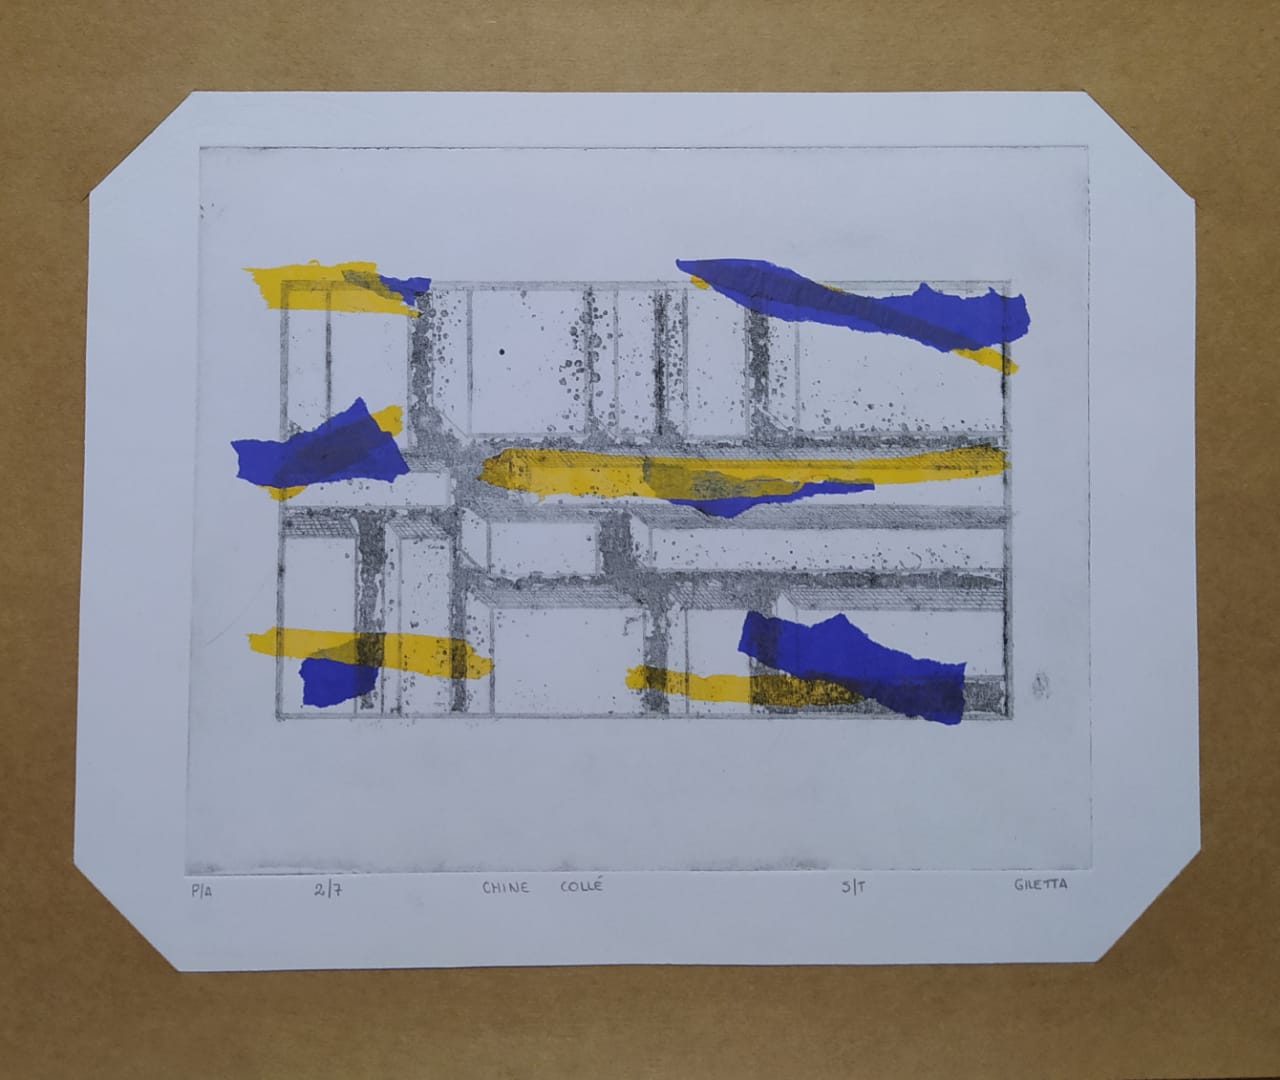 P/A 2/7 CHINE COLLÉ S/T GILETTA